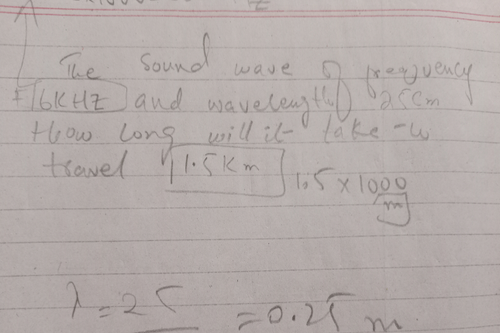 The Sound wave of freqvency
16KHZ and wavelength of 25cm
How long will it take to
travel 1.5 Km
1.5 x 1000
m
λ = 25 = 0.25 m